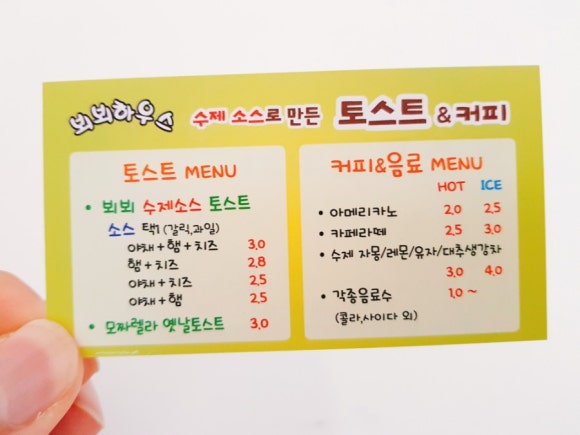 뵈뵈하우스 수제 소스로 만든 토스트 &커피
토스트 MENU
• 뵈뵈 수제소스 토스트
소스 택1 (갈릭,과일)
야채 + 햄 + 치즈 3,0
햄 + 치즈 2,8
야채 + 치즈 2,5
야채 + 햄 2,5
• 모짜렐라 옛날토스트 3,0
커피&음료 MENU
HOT ICE
• 아메리카노 2,0 2,5
• 카페라떼 2,5 3,0
• 수제 자몽/레몬/유자/대추생강차
3,0 4,0
• 각종음료수 1,0 ~
(콜라,사이다 외)